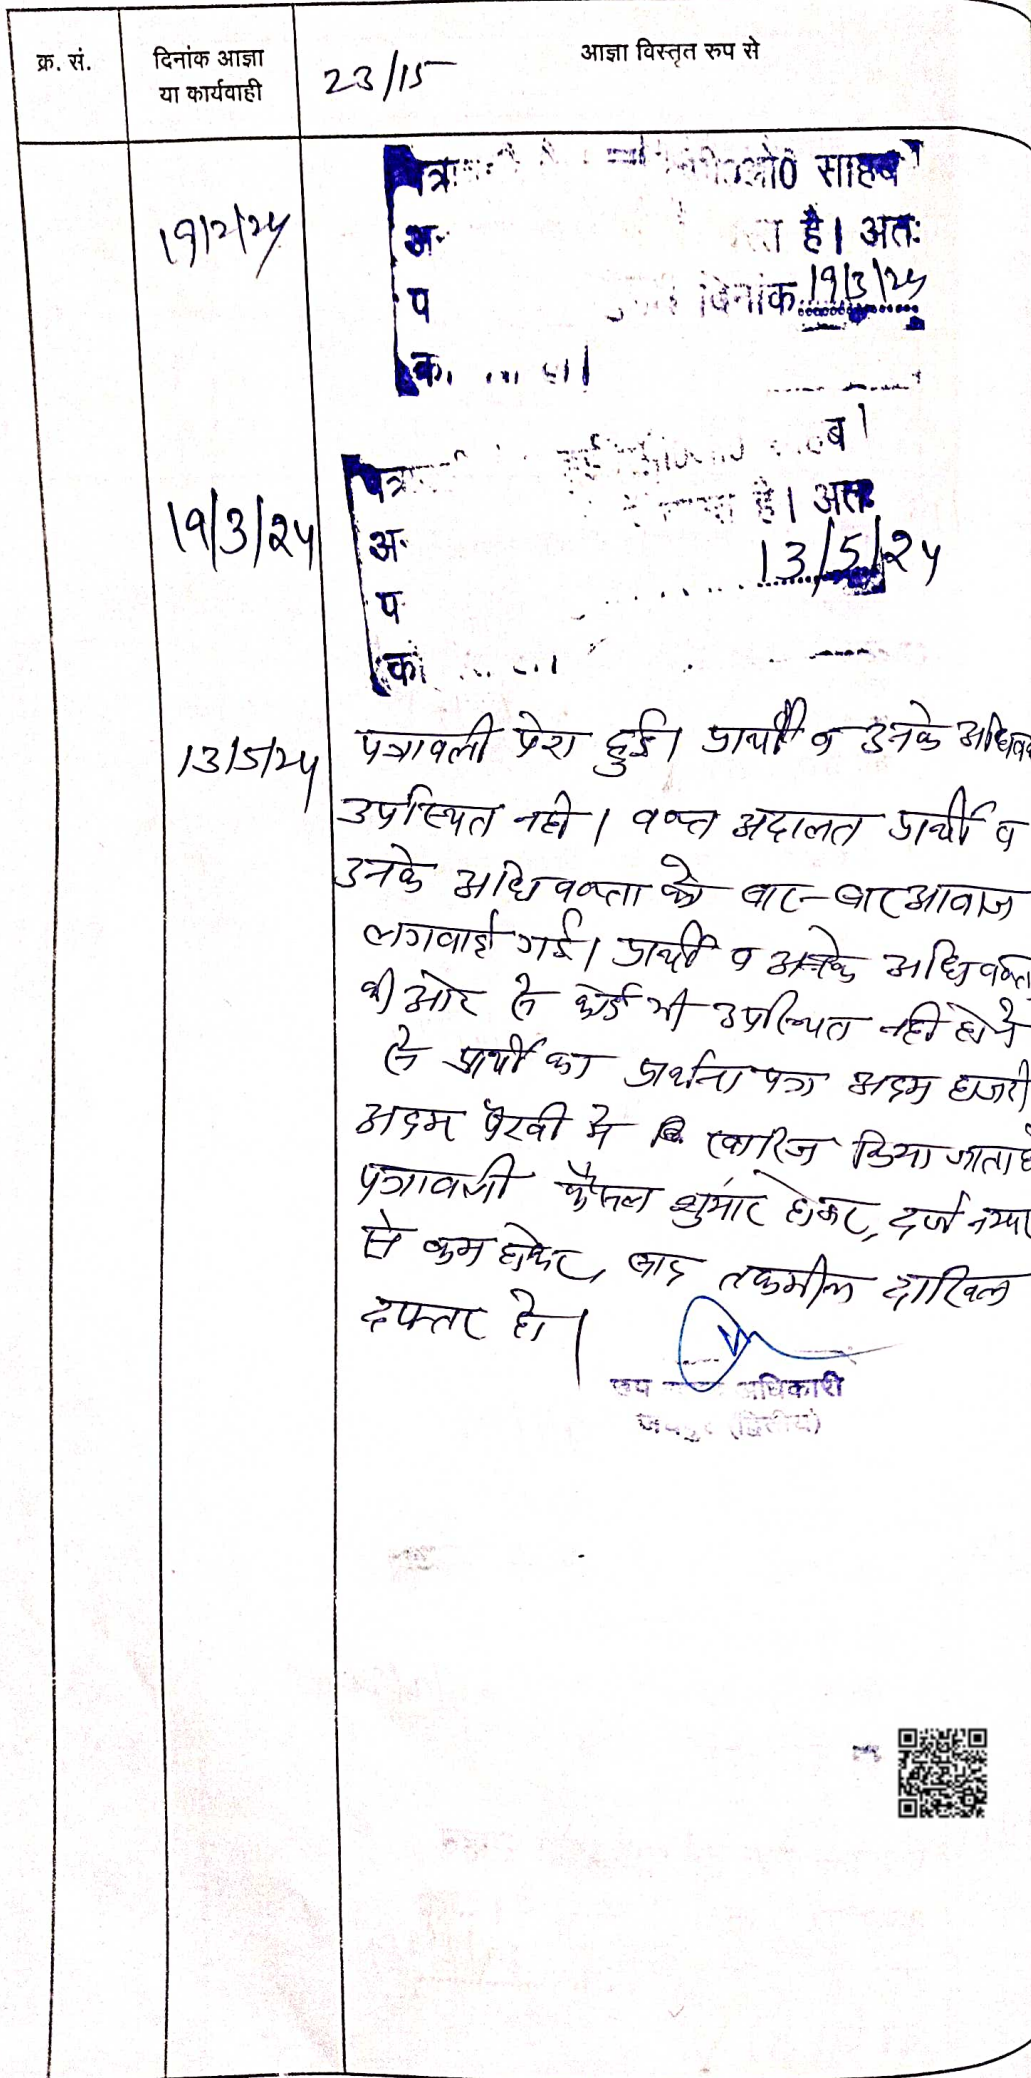 क्र. सं.
दिनांक आज्ञा
या कार्यवाही
23/15
आज्ञा विस्तृत रुप से
19/2/24
ओ0 साहब
है। अतः
प दिनांक 19/3/24
19/3/24
है। अतः
अ
13/5/24
प
13/5/24
पत्रावली पेश हुई। प्रार्थी व उनके अधिवक्
उपस्थित नही। वक्त अदालत प्रार्थी व
उनके अधिवक्ता को बार-बार आवाज
लगवाई गई। प्रार्थी व उनके अधिवक्ता
की ओर से कोई भी उपस्थित नही होने
से प्रार्थी का प्रार्थना पत्र अदम हाजरी
अदम पैरवी मे खारिज किया जाता है
पत्रावली फैसल शुमार होकर, दर्ज नम्बर
से कम होकर, बाद तकमील दाखिल
दफ्तर हो।
अधिकारी
(द्वितीय)